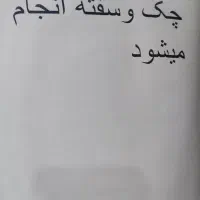 چک و سفته انجام
میشود